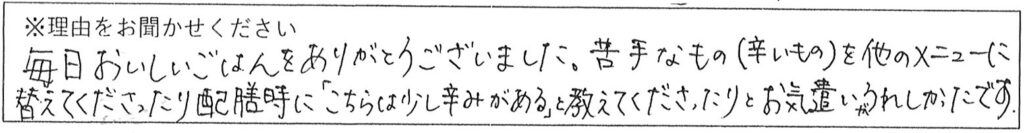 ※理由をお聞かせください
毎日おいしいごはんをありがとうございました。苦手なもの(辛いもの)を他のメニューに
替えてくださったり配膳時に「こちらは少し辛みがある」と教えてくださったりとお気遣いがうれしかったです.